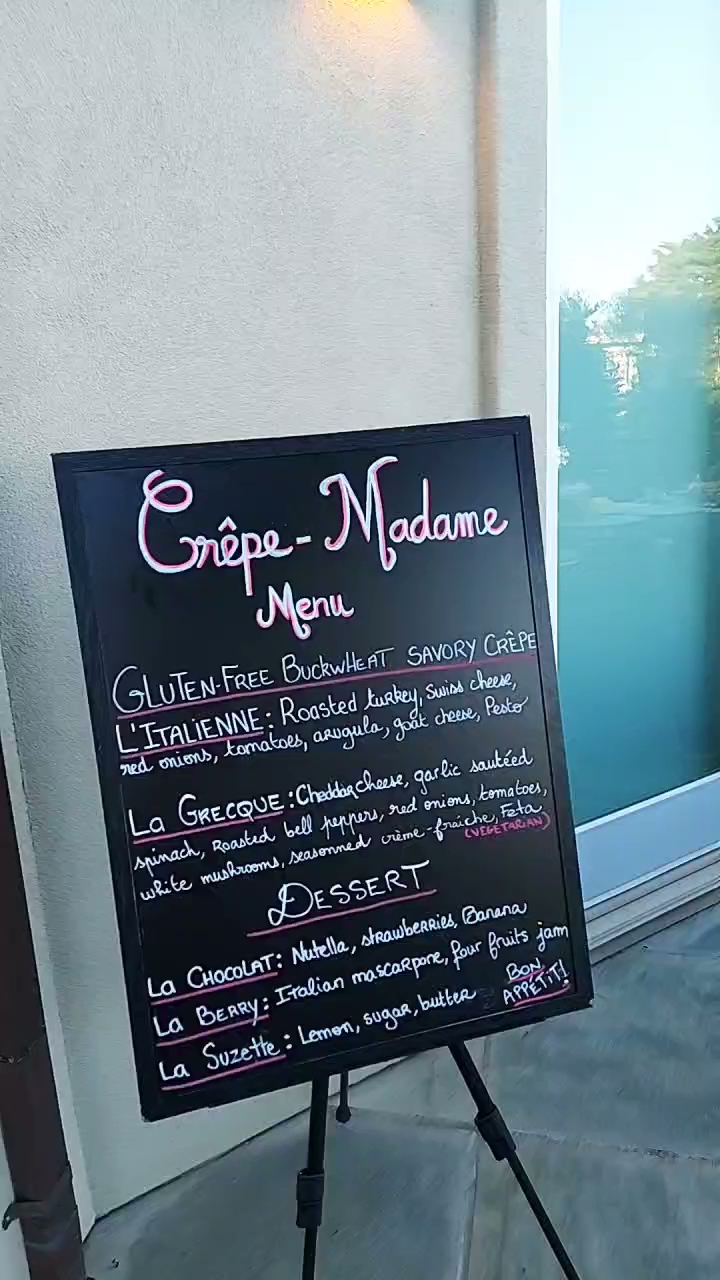 Crêpe-Madame
Menu
GLUTEN-FREE BUCKWHEAT SAVORY CRÊPE
L'ITALIENNE: Roasted turkey, swiss cheese,
red onions, tomatoes, arugula, goat cheese, Pesto
La GRECQUE: Cheddar cheese, garlic sautéed
spinach, Roasted bell peppers, red onions, tomatoes,
white mushrooms, seasonned crème-fraîche, Feta
(VEGETARIAN)
DESSERT
La CHOCOLAT: Nutella, strawberries, Banana
La BERRY: Italian mascarpone, four fruits jam
La Suzette: Lemon, sugar, butter
BON
APPÉTIT!